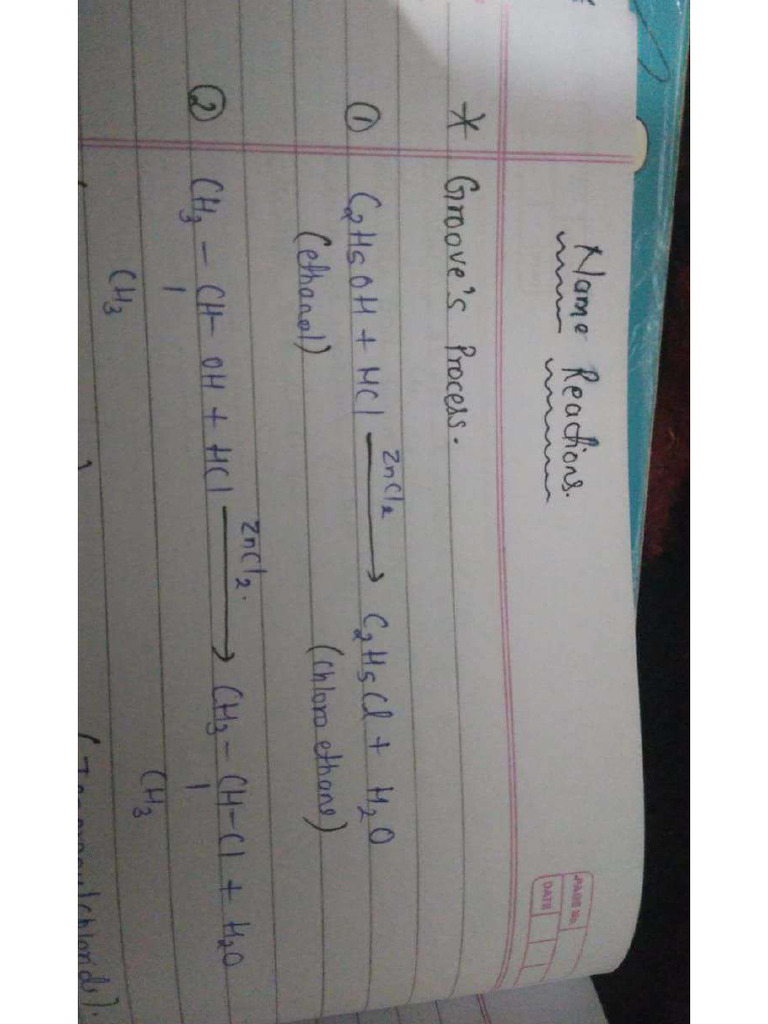 PAGE No.
DATE
Name Reactions.
* Groove's Process.
① C2H5OH + HCl ZnCl2 → C2H5Cl + H2O
(ethanol) (chloro ethane)
② CH3 - CH - OH + HCl ZnCl2. → CH3 - CH - Cl + H2O
CH3 CH3